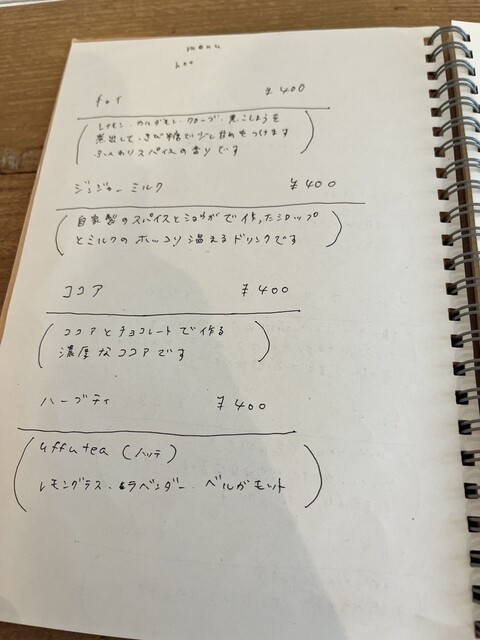 menu
hot
¥400
シナモン・カルダモン・クローブ・黒こしょうを
煮出して、きび糖で少し甘めをつけます
ふんわりスパイスの香りです
ジンジャーミルク ¥400
自家製のスパイスとショウガで作ったシロップ
とミルクのホッコリ温まるドリンクです
ココア ¥400
ココアとチョコレートで作る
濃厚なココアです
ハーブティ ¥400
uffu tea
レモングラス・ラベンダー・ベルガモット